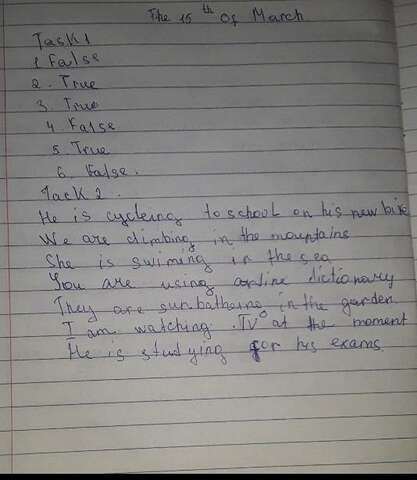 The 15th Of March
Task 1
1 False
2. True
3. True
4. False
5. True
6. False.
Tack 2.
He is cycleing to school on his new bike
We are climbing in the mountains
She is swiming in the sea
You are using online dictionary
They are sunbatheing in the garden.
I am watching TV at the moment
He is studying for his exams